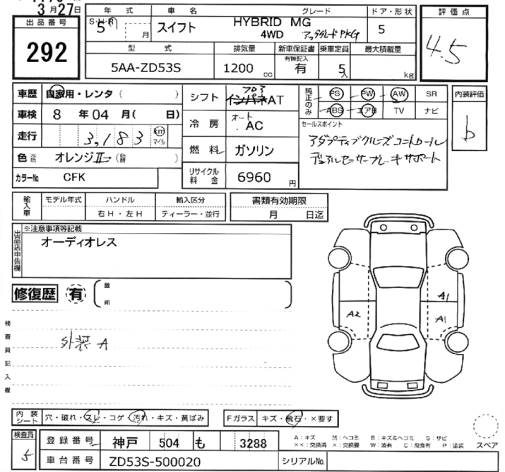 3月27日
出品番号
292
年式 車名 グレード ドア・形状 評価点
S・H・R 5 月 スイフト HYBRID MG 4WD アップグレードPKG 5 4.5
型式 排気量 新車保証書 乗車定員 最大積載量
5AA-ZD53S 1200 cc 有 5人 kg
車歴 自家用・レンタ( )
車検 8年04月( 日)
走行 3,183 km マイル
色 オレンジII
カラーNo CFK
シフト フロア インパネAT
冷房 オート AC
燃料 ガソリン
リサイクル料金 6960円
純正のみ PS PW AW SR
ABS エアB TV ナビ
セールスポイント
アダプティブクルーズコントロール
デュアルセンサーブレーキサポート
内装評価
b
輸入車 モデル年式 ハンドル 輸入区分
年 右H・左H ディーラー・並行
書類有効期限
月 日迄
※注意事項等記載
オーディオレス
修復歴 有
検査員記入欄
外装A
A2 A1 A1
内装シート 穴・破れ・スレ・コゲ・汚れ・キズ・黄ばみ
Fガラス キズ・飛石・×要す
検査員 5
登録番号 神戸 504 も 3288
車台番号 ZD53S-500020
シリアルNo.
スペア